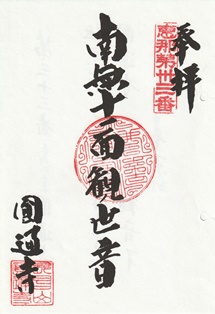 奉拝
恵那第廿三番
南無十一面観世音
圓通寺